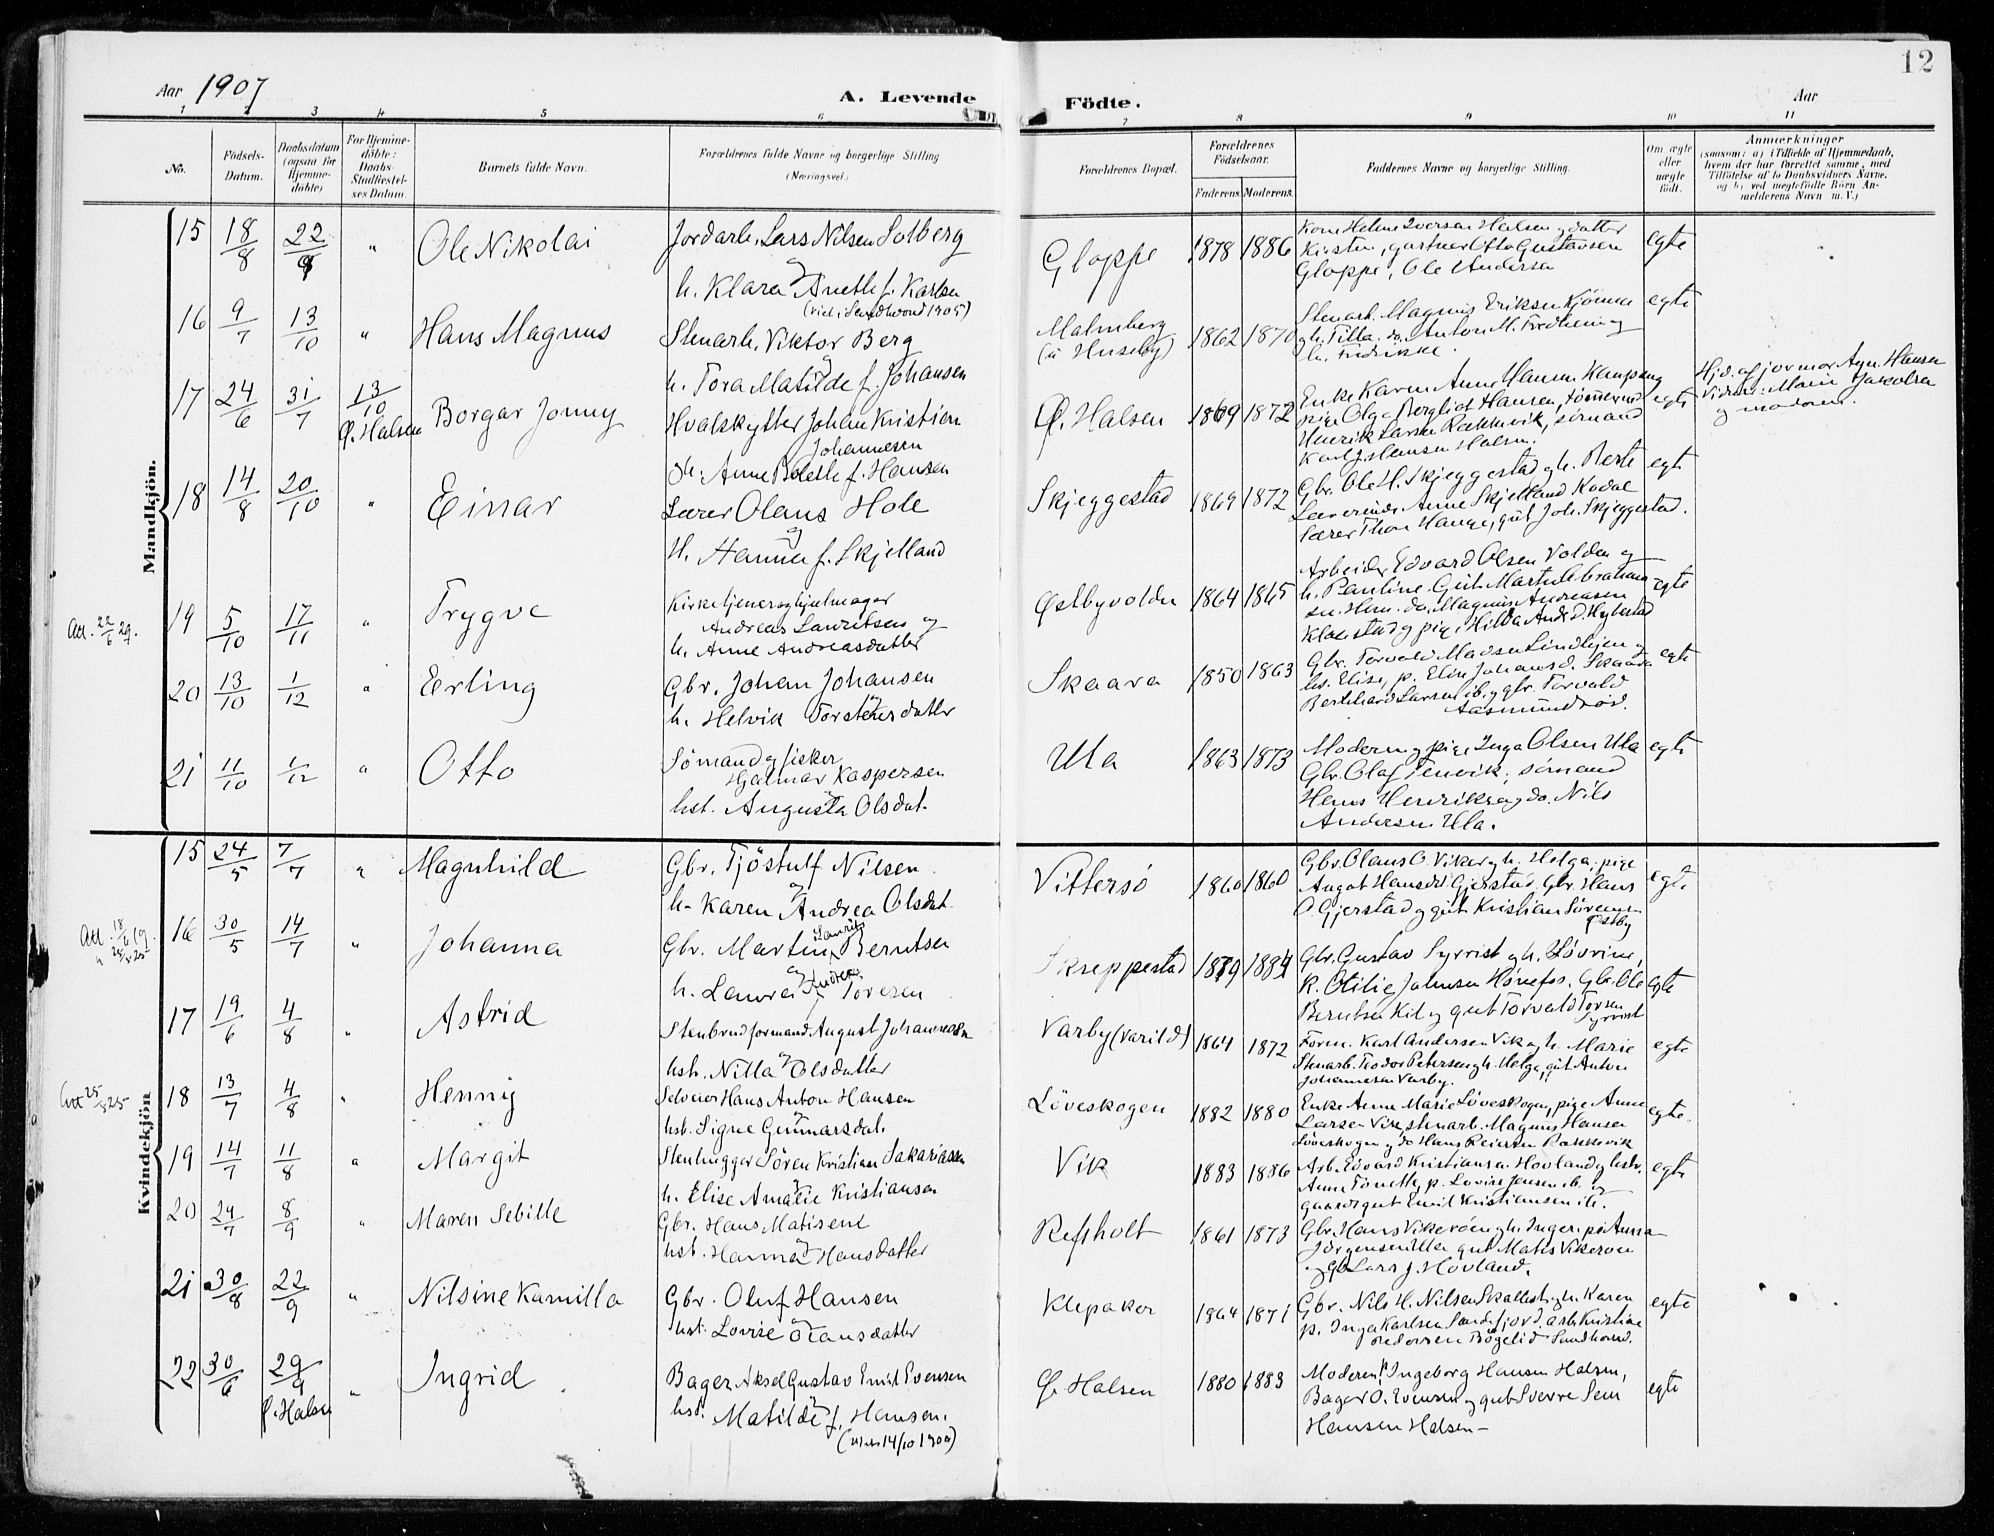 12
Aar 1907
A. Levende Födte.
Aar
1 2 3 4 5 6 7 8 9 10 11
No.
Födsels-Datum.
Daabsdatum (ogsaa for Hjemme-döbte)
For Hjemme-döbte: Daabs-Stadfæstelses Datum.
Barnets fulde Navn.
Forældrenes fulde Navne og borgerlige Stilling
(Næringsvei.)
Forældrenes Bopæl.
Forældrenes Födselsaar.
Faderens Moderens.
Faddernes Navne og borgerlige Stilling.
Om ægte eller uægte födt.
Anmærkninger
(saasom: a) i Tilfælde af Hjemmedaab,
hvem der har forrettet samme, med
Tilföielse af to Daabsvidners Navne.
og b) ved uægtefödte Börn An-
melderens Navn m. V.)
Mandkjön.
15 18/8 22/9 " Ole Nikolai
Jordarb. Lars Nilsen Solberg
og
h. Klara Aneth f. Karlsen
(viet i Sandhered 1905)
Gloppe 1878 1886
Kone Helene Iversen Halsen og datter
Kirsten, gartner Otto Gustavsen
Gloppe, Ole Andersen
egte
16 9/7 13/10 " Hans Magnus
Stenarb. Viktor Berg
og
h. Tora Matilde f. Johansen
Malmberg
(u Huseby)
1862 1870
Stenarb. Magnus Eriksen Kjönnu
og h. Tilla. do. Anton M. Fredhein og
h. Fredrikke.
egte
17 24/6 31/7 13/10 Borgar Jonny
Ø. Halsen
Hvalskytter Johan Kristian
Johannesen
h. Anne Bolette f. Hansen
Ø. Halsen 1869 1872
Enke Karen Anne Hansen Kaupang
pige Olga Bergliot Hansen, tömmermd
Henrik Larsen Rækkevik, sömand
Karl J. Hansen Halsen.
egte
Hjd. af jormor Agn. Hansen
Vidner: Marie Jakobsen
og moderen.
18 14/8 20/10 " Einar
Lærer Olaus Hole
og
H. Hanna f. Skjelland
Skjeggestad 1869 1872
Gbr. Ole H. Skjeggestad og h. Berte
Lærerinde Anne Skjelland Kodal
Lærer Thor Hauge, gut Joh. Skjeggestad.
egte
Att. 22/6 29.
19 5/10 17/11 " Trygve
Kirketjener og hjulmager
Andreas Lauritsen og
h. Anne Andreasdatter
Østbyvolden 1864 1865
Arbeider Edvard Olsen Volden og
h. Pauline. Gut Martin Abraham-
sen Hem. do. Magnus Andreasen
Klavestad og pige Hilda And.d. Hybestad
egte
20 13/10 1/12 " Erling
Gbr. Johan Johansen
og
h. Helvik Torstensdatter
Skaara 1850 1863
Gbr. Torvald Madsen Lindhjem og
hs. Elise, p. Elin Johansd. Skaara
Bernhard Larsen ib. og gbr. Torvald
Aasmundröd.
egte
21 11/10 1/12 " Otto
Sömand og fisker
Hjalmar Kaspersen
og
hst. Augusta Olsdat.
Ula 1863 1873
Moderen og pige Inga Olsen Ula
Gbr. Olaf Fenvik, sömand
Hans Henriksen og do. Nils
Andersen Ula.
egte
Kvindekjön
15 24/5 7/7 " Magnhild
Gbr. Tjöstulf Nilsen
og
h. Karen Andrea Olsdat.
Vittersö 1860 1860
Gbr. Olaus O. Viker og h. Helga, pige
Augot Hansdr Gjerstad. Gbr. Hans
O. Gjerstad og gut Kristian Sörensen
Østby
egte
16 30/5 14/7 " Johanna
Gbr. Martin Laurits Berntsen
og
h. Laura Andrea Toresen
Skreppestad 1879 1884
Gbr. Gustav Syrrist og h. Lovrine,
p. Otilie Johnsen Hönefos, Gbr. Ole
Berntsen Kil og gut Torvald Torsen
Syrrist
egte
17 19/6 4/8 " Astrid
Stenbrudformand August Johannesen
og
hst. Nilla Olsdatter
Varby (Varild) 1864 1872
Form. Karl Andersen Vik og h. Marie
Stenarb. Teodor Petersen og h. Helga, gut Anton
Johannesen Varby.
egte
18 13/7 4/8 " Henny
Selveier Hans Anton Hansen
og
hst. Signe Gunnarsdat.
Löveskogen 1882 1880
Enke Anne Marie Löveskogen, pige Anne
Larsen Vik, stenarb. Magnus Hansen
Löveskogen og do Hans Reiersen Rækkevik
egte.
19 14/7 11/8 " Margit
Stenhugger Sören Kristian Sakariassen
og
h. Elise Amalie Kristiansen
Vik 1883 1886
Arb. Edvard Kristiansen Hovland og hstr.
Anne Tonette, p. Lovise Jensen ib. og
gaardsgut Emil Kristiansen ib.
egte
20 24/7 8/9 " Maren Sebille
Gbr. Hans Matisen
og
hst. Hanna Hansdatter
Refsholt 1861 1873
Gbr. Hans Vikeröen og h. Inger. pi. Anna
Jörgensen Ula gut Matis Vikeröen
og Gbr Lars J. Hovland.
egte
21 30/8 22/9 " Nilsine Kamilla
Gbr. Oluf Hansen
og
hst. Lovise Olausdatter
Klepaker 1864 1871
Gbr. Nils H. Nilsen Skallest og h. Karen
p. Inga Karlsen Sandefjord, arb Kristine
Pedersen Bögelid Sandhered.
egte
22 30/6 29/9 " Ingrid
Ø. Halsen
Bager Aksel Gustav Emil Evensen
og
hst. Matilde f. Hansen.
(viet 14/10 1900)
Ø. Halsen 1880 1883
Moderen, p. Ingeborg Hansen Halsen,
Bager O. Evensen og gut Sverre Sem
Hansen Halsen
egte